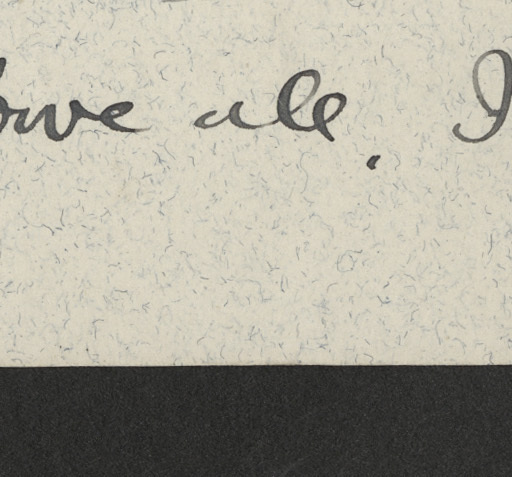 ove all, I